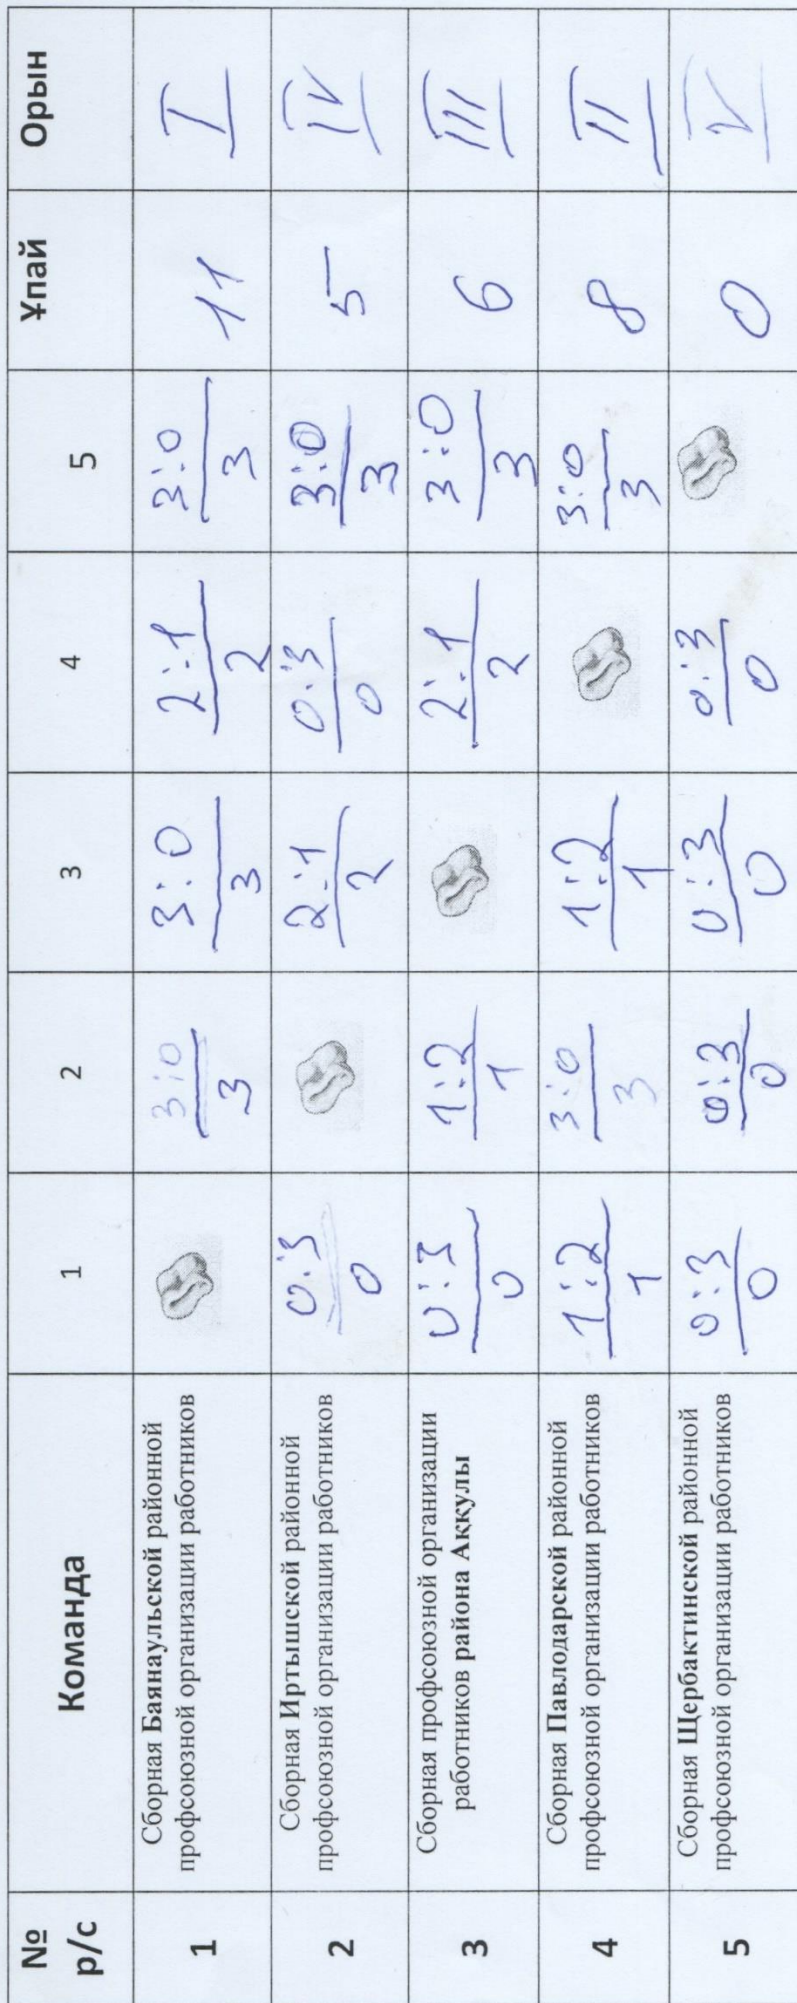 № р/с Команда 1 2 3 4 5 Ұпай Орын
1 Сборная Баянаульской районной профсоюзной организации работников 3:0 3 3:0 3 2:1 2 3:0 3 11 I
2 Сборная Иртышской районной профсоюзной организации работников 0:3 0 2:1 2 0:3 0 3:0 3 5 IV
3 Сборная профсоюзной организации работников района Аккулы 0:3 0 1:2 1 2:1 2 3:0 3 6 III
4 Сборная Павлодарской районной профсоюзной организации работников 1:2 1 3:0 3 1:2 1 3:0 3 8 II
5 Сборная Щербактинской районной профсоюзной организации работников 0:3 0 0:3 0 0:3 0 0:3 0 0 V